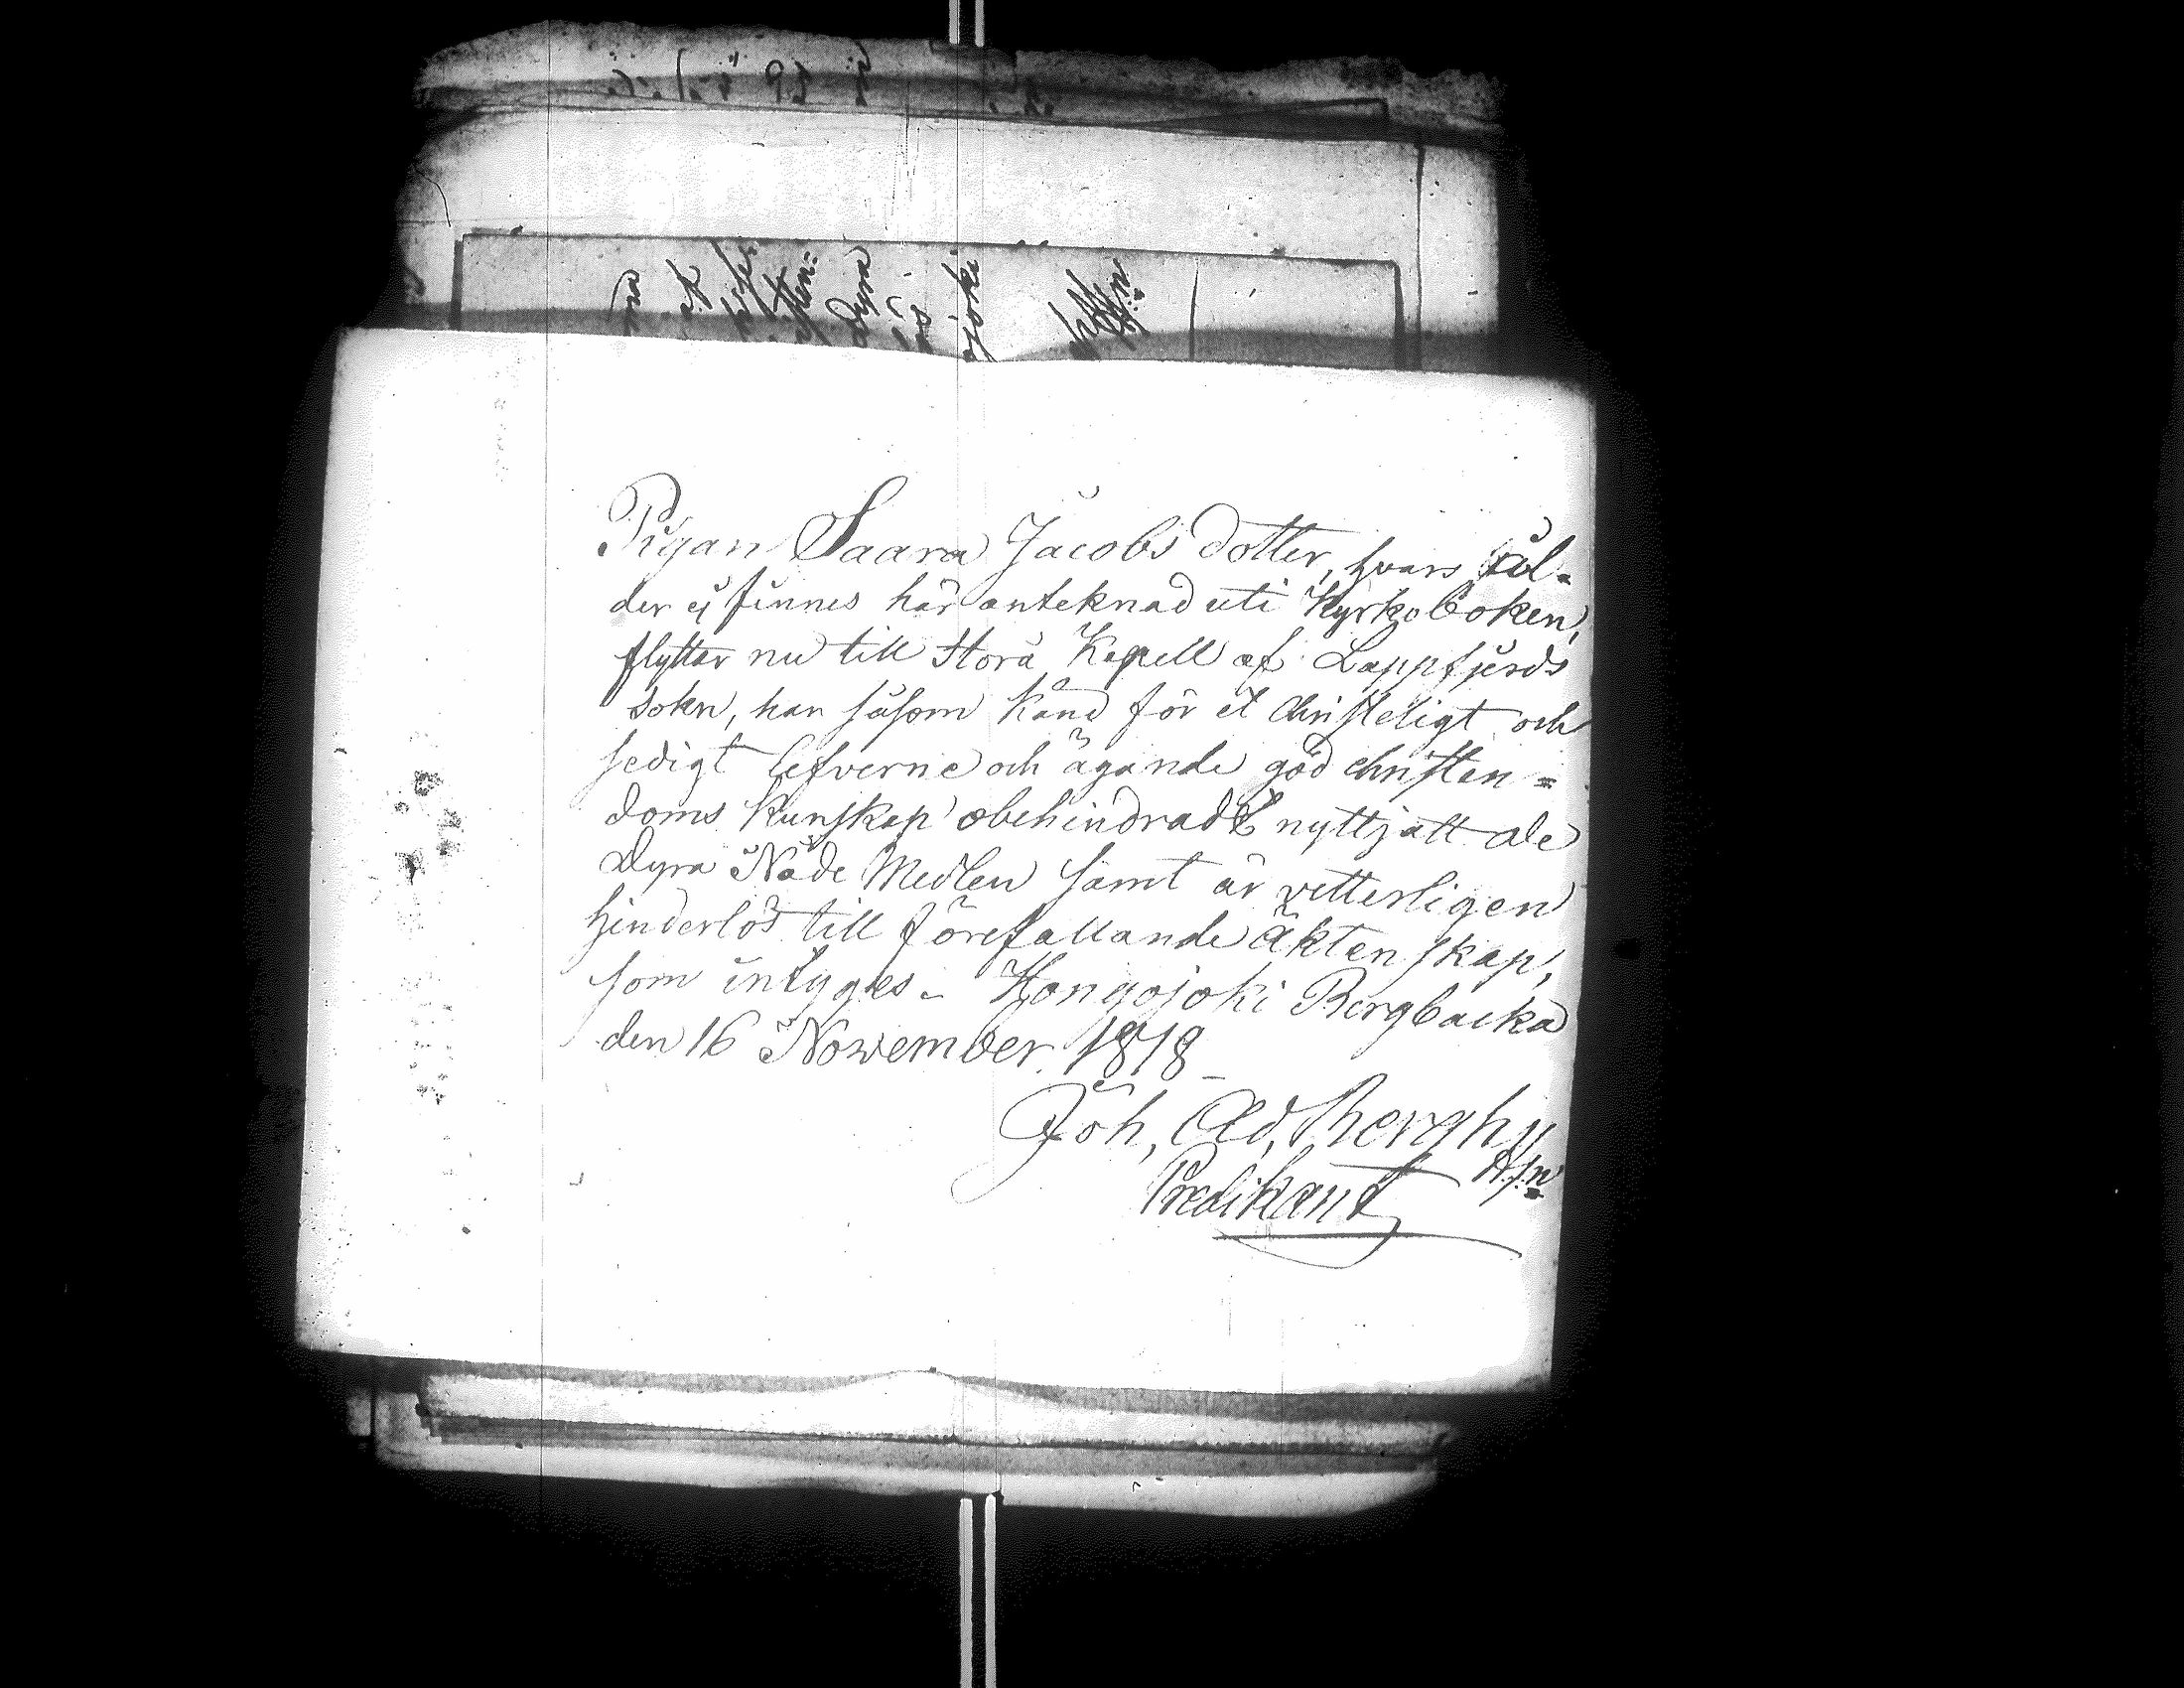 Pigan Saara Jacobs dotter, hvars ål-
der ej finnes här anteknad uti Kyrkoboken,
flyttar nu till Storå Kapell af Lappfjerds
sokn, har såsom känd för et Christeligt och
sedigt lefverne och ägande god christen=
doms kunskap obehindradt nyttjatt de
Dyra Nåde Medlen samt är vetterligen
hinderlös till förefallande Äktenskap,
som intyges. Hongojoki Bergbacka
den 16 November 1818
Joh, Ad, Bergh
Predikant